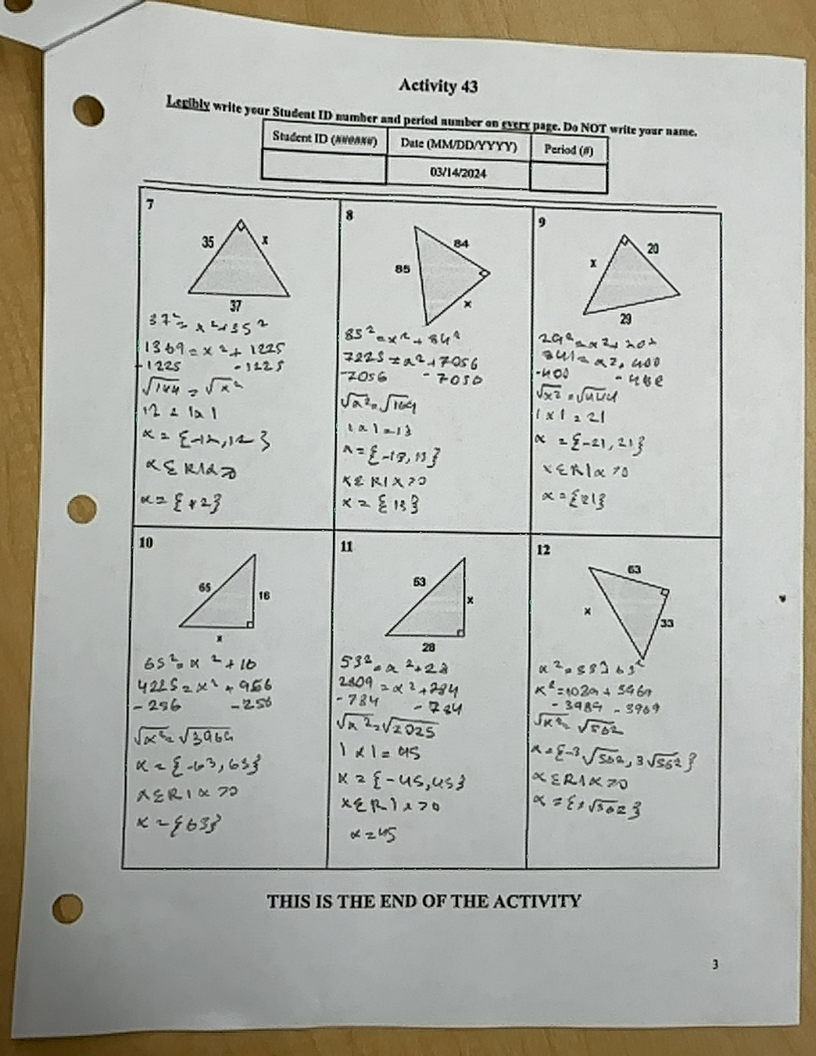 Activity 43
Legibly write your Student ID number and period number on every page. Do NOT write your name.
Student ID (######) Date (MM/DD/YYYY) Period (#)
03/14/2024
7
35
x
37
37² = x² + 35²
1369 = x² + 1225
-1225 -1225
√144 = √x²
12 = |x|
x = {-12, 12}
x ∈ R | x > 0
8
84
85
x
85² = x² + 84²
7225 = x² + 7056
-7056 -7056
√x² = √169
|x| = 13
x = {-13, 13}
x ∈ R | x > 0
x = {13}
9
20
x
29
29² = x² + 20²
841 = x² + 400
-400 -400
√x² = √441
|x| = 21
x = {-21, 21}
x ∈ R | x > 0
x = {21}
10
65
16
x
65² = x² + 16
-256 -256
√x² = √3969
x = {-63, 63}
x ∈ R | x > 0
x = {63}
11
53
x
28
53² = x² + 28
2809 = x² + 784
-784 -784
√x² = √2025
|x| = 45
x = {-45, 45}
x ∈ R | x > 0
x = 45
12
63
x
33
-3969 -3969
√x² = √562
x = {-3√562, 3√562}
x ∈ R | x > 0
THIS IS THE END OF THE ACTIVITY
3